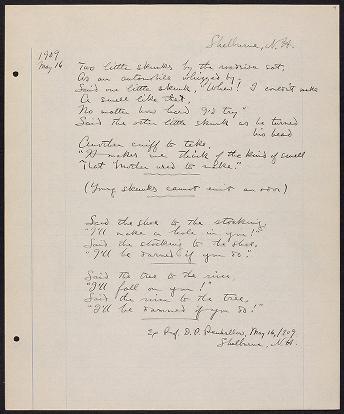 Shelburne, N.H.
1909
May 16
Two little skunks by the roadside sat,
As an automobile whizzed by.
Said one little skunk, "Whew! I couldn't make
A smell like that,
No matter how hard I'd try"
Said the other little skunk as he turned
his head
Another sniff to take,
"It makes me think of the kind of smell
That Mother used to make."
(Young skunks cannot emit an odor)
Said the shoe to the stocking,
"I'll make a hole in you!"
Said the stocking to the shoe,
"I'll be darned if you do."
Said the tree to the river,
"I'll fall on you!"
Said the river to the tree,
"I'll be dammed if you do!"
Prof. D. P. Penhallow, May 16, 1909.
Shelburne, N.H.